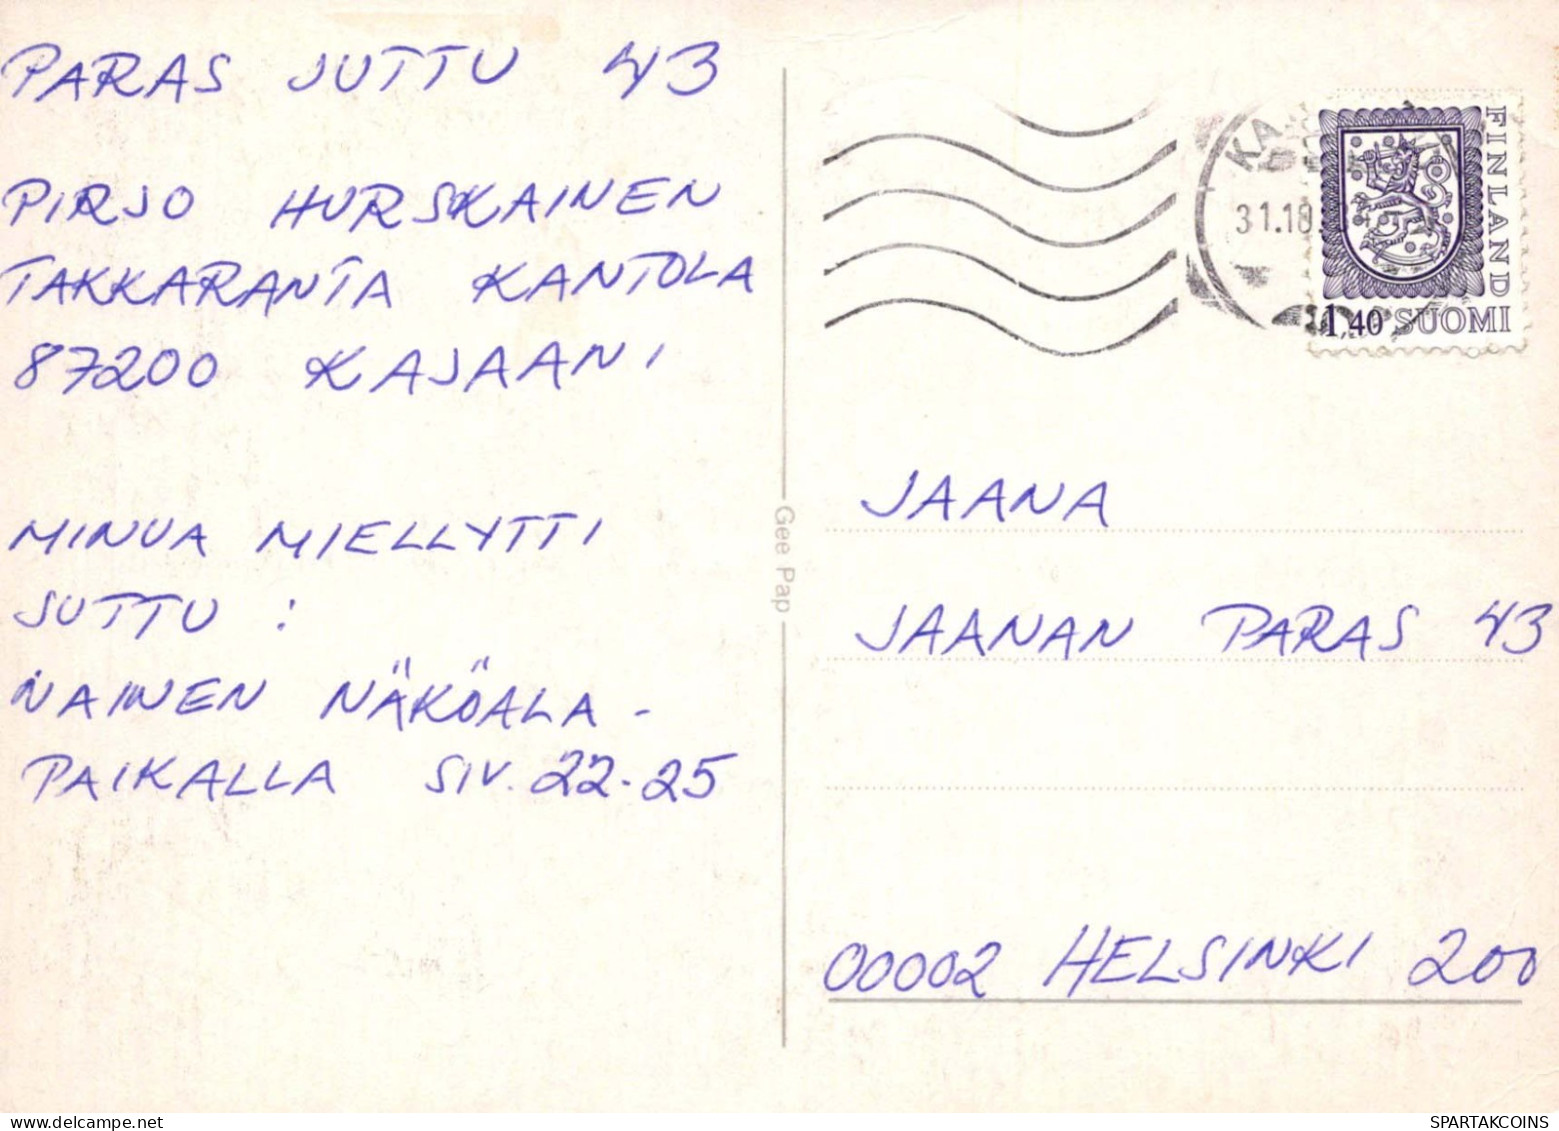 PARAS JUTTU 43
PIRJO HURSKAINEN
TAKKARANTA KANTOLA
87200 KAJAANI
MINUA MIELLYTTI
JUTTU :
NAINEN NÄKÖALA-
PAIKALLA SIV. 22-25
Gee Pap
KA
31.10.
FINLAND
1,40 SUOMI
JAANA
JAANAN PARAS 43
00002 HELSINKI 200
SPARTAKCOINS